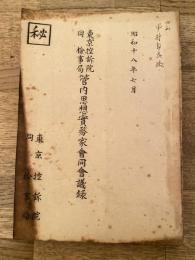 秘
昭和十八年七月
東京控訴院
同 検事局
管内思想實務家會同會議録
東京控訴院
同 検事局